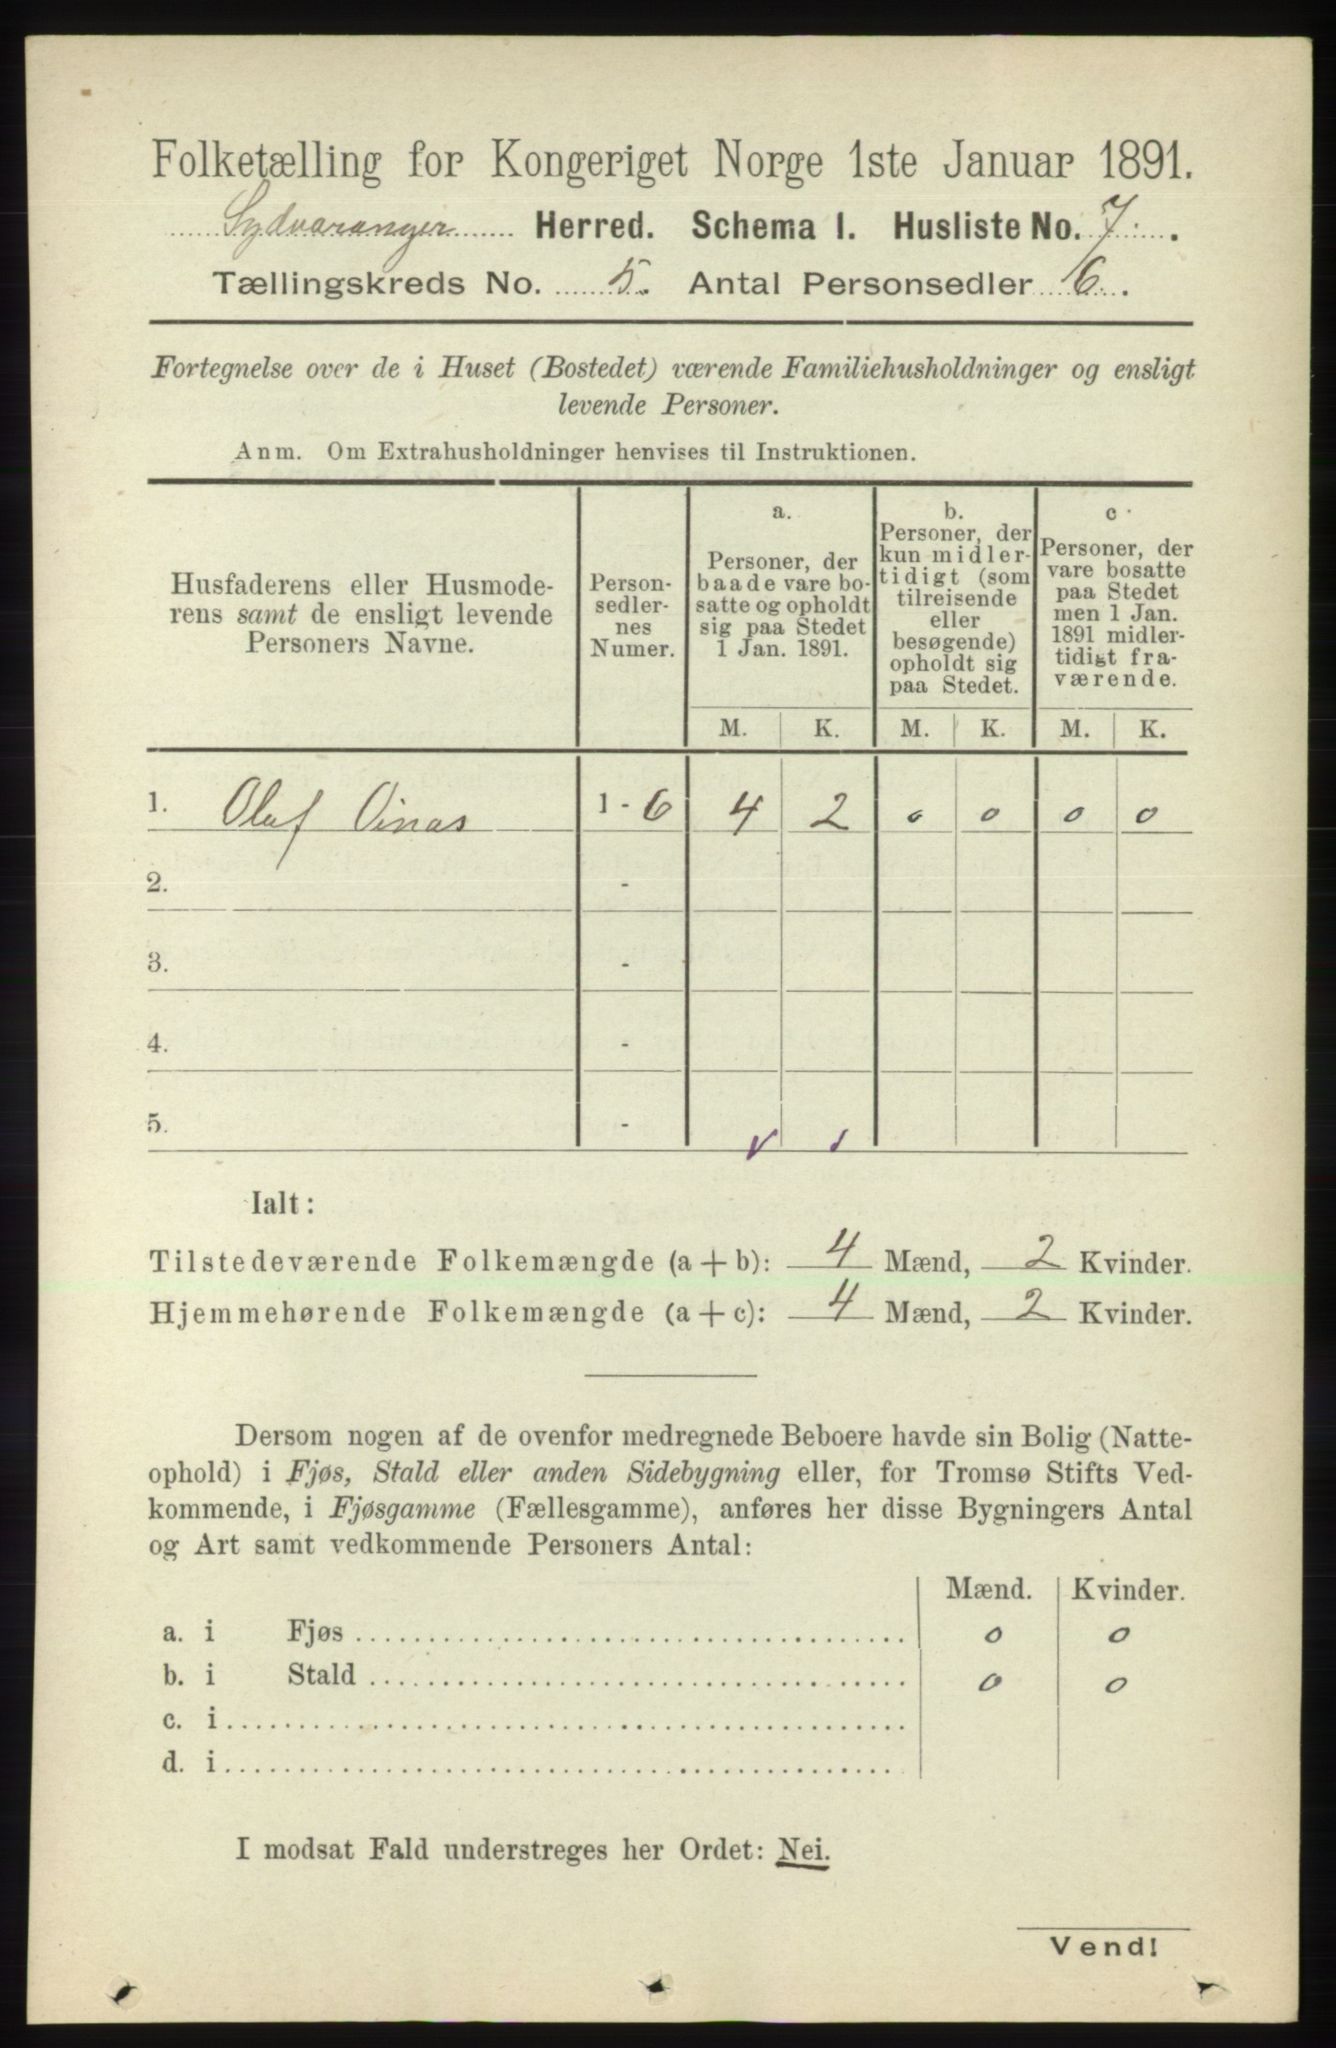 Folketælling for Kongeriget Norge 1ste Januar 1891.
Sydvaranger Herred. Schema I. Husliste No. 7.
Tællingskreds No. 5. Antal Personsedler 6.
Fortegnelse over de i Huset (Bostedet) værende Familiehusholdninger og ensligt
levende Personer.
Anm. Om Extrahusholdninger henvises til Instruktionen.
Husfaderens eller Husmode-
rens samt de ensligt levende
Personers Navne.
Person-
sedler-
nes
Numer.
a.
Personer, der
baade vare bo-
satte og opholdt
sig paa Stedet
1 Jan. 1891.
b.
Personer, der
kun midler-
tidigt (som
tilreisende
eller
besøgende)
opholdt sig
paa Stedet.
c.
Personer, der
vare bosatte
paa Stedet
men 1 Jan.
1891 midler-
tidigt fra-
værende.
M. K. M. K. M. K.
1. Olaf Oinas 1 - 6 4 2 0 0 0 0
2. -
3. -
4. -
5. -
Ialt:
Tilstedeværende Folkemængde (a + b): 4 Mænd, 2 Kvinder.
Hjemmehørende Folkemængde (a + c): 4 Mænd, 2 Kvinder.
Dersom nogen af de ovenfor medregnede Beboere havde sin Bolig (Natte-
ophold) i Fjøs, Stald eller anden Sidebygning eller, for Tromsø Stifts Ved-
kommende, i Fjøsgamme (Fællesgamme), anføres her disse Bygningers Antal
og Art samt vedkommende Personers Antal:
Mænd. Kvinder.
a. i Fjøs 0 0
b. i Stald 0 0
c. i
d. i
I modsat Fald understreges her Ordet: Nei.
Vend!